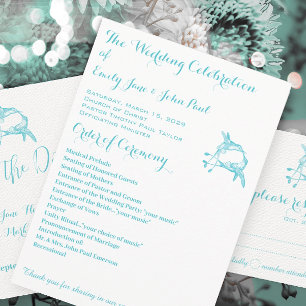 The Wedding Celebration
of
Emily Jane & John Paul
Saturday, March 15, 2029
Church of Christ
Pastor Timothy Paul Taylor
Officiating Minister
Order of Ceremony
Musical Prelude
Seating of Honored Guests
Seating of Mothers
Entrance of Pastor and Groom
Entrance of the Wedding Party; "your music"
Entrance of the Bride, "your music"
Exchange of Vows
Prayer
Unity Ritual, "your choice of music"
Pronouncement of Marriage
Introduction of:
Mr. & Mrs. John Paul Emerson
Recessional
Thank you for sharing in our
the Da
please r
Oct.
number attend